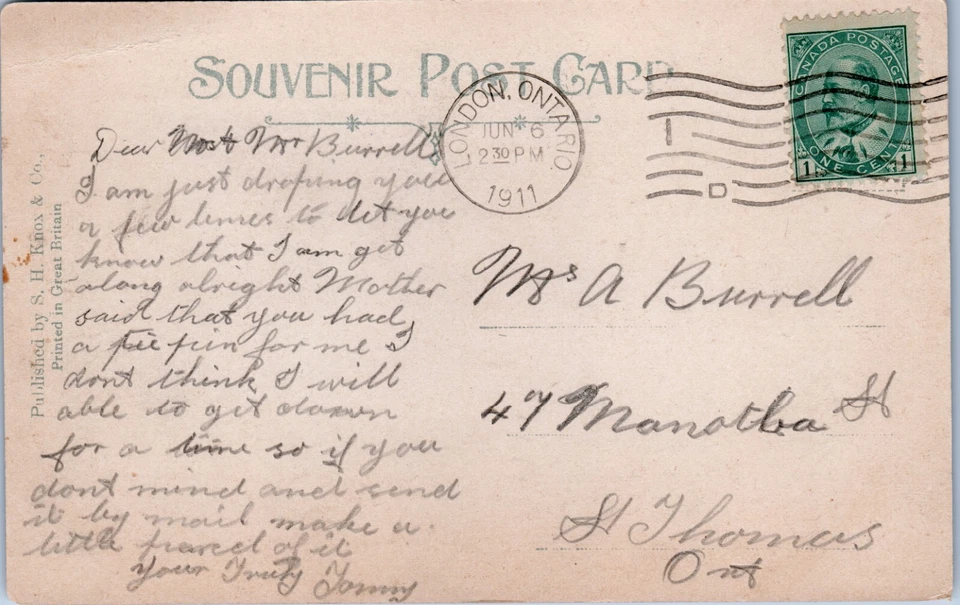 SOUVENIR POST CARD
LONDON, ONTARIO
JUN 6
2 30 PM
1911
CANADA POSTAGE
1 ONE CENT 1
D
Published by S. H. Knox & Co.,
Printed in Great Britain
Dear Mr Burrell
I am just droping you
a few lines to let you
know that I am get
along alright Mother
said that you had
a pin for me I
dont think I will
able to get down
for a time so if you
dont mind and send
it by mail make a
little parcel of it
Your Truly Tommy
Mrs A Burrell
47 St
St Thomas
Ont